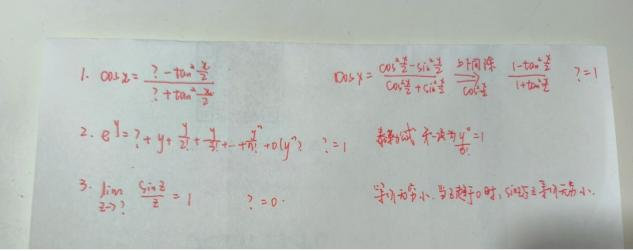 1. cosx = (? - tan² x/2) / (? + tan² x/2) cosx = (cos² x/2 - sin² x/2) / (cos² x/2 + sin² x/2) 时间除 cos² x/2 (1 - tan² x/2) / (1 + tan² x/2) ? = 1
2. e^y = ? + y + y/2! + y/3! + … + y^n/n! + o(y^n) ? = 1 泰勒公式 y^0/0! = 1
3. lim z→? sinz/z = 1 ? = 0. 等价无穷小. 当z趋于0时, sinz与z等价无穷小.